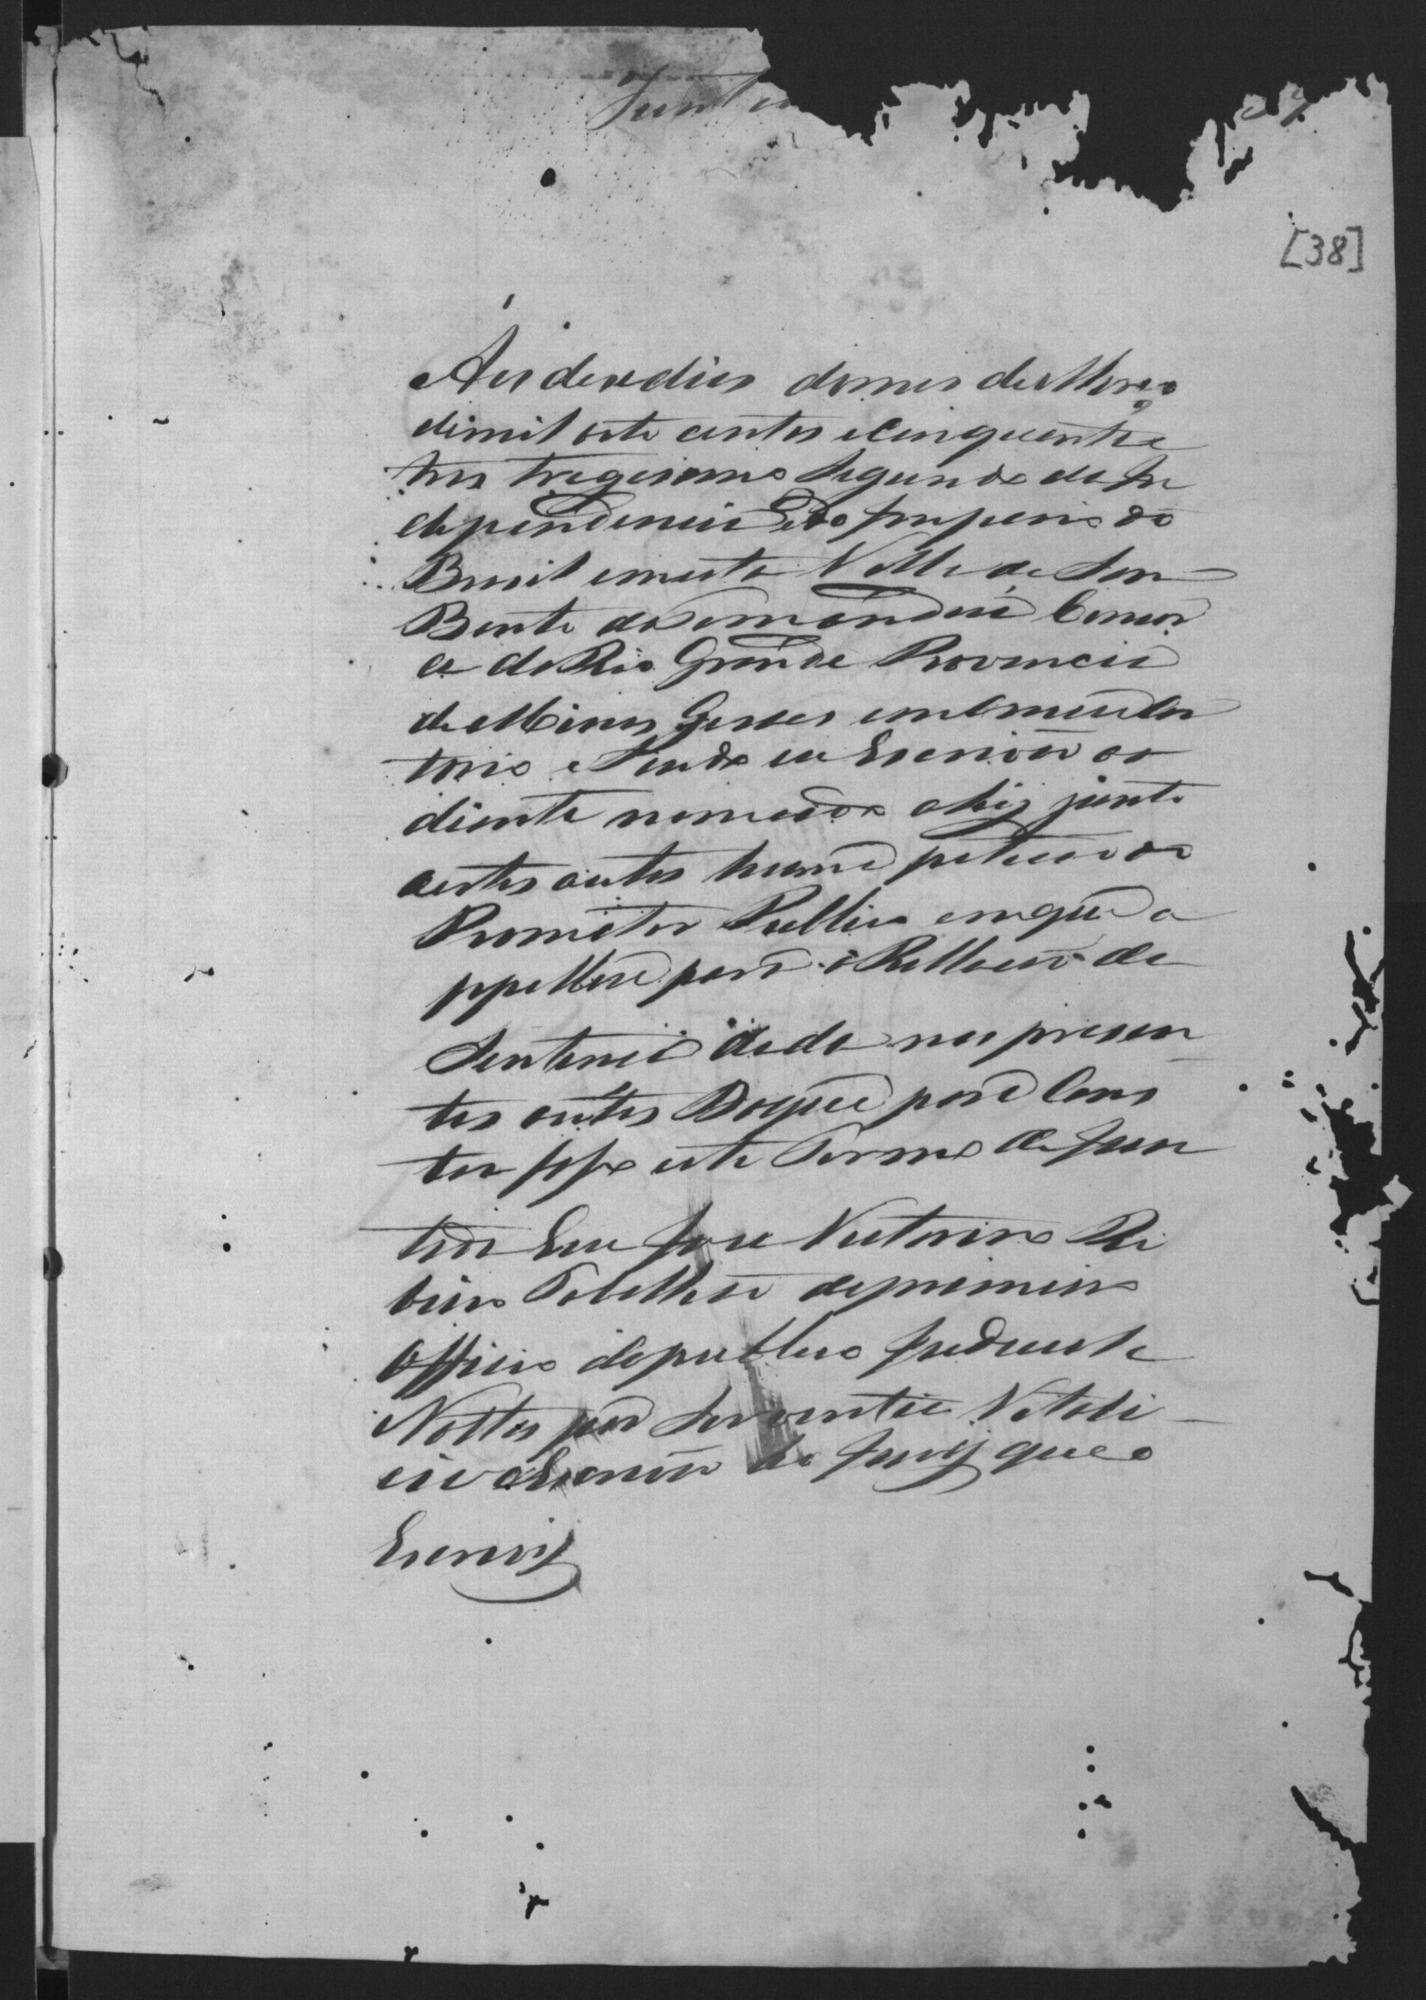 Junta
[38]
Aos des dias do mes de Março
de mil oito centos e Cinquenta e
tres trigesimo Segundo da In
dependencia e do Imperio do
Brasil em esta Villa de Sam
Bento do Tamanduá Comar
ca do Rio Grande Provincia
de Minas Geraes em Cmeu Car
torio e Sendo eu Escrivam ao
diante nomeado ahiz junto
aestes autos huma peticam do
Promotor Publico em que a
ppellou para a Rellacam da
Sentenca dada nos presen
tes autos Doque para Cons
tar fiz este Termo de Jun
tada Eu José Victorino Ri
beiro Tabelliam do primeiro
Officio do publico Judicial e
Nottas por Serventia Vitali
cia e Escrivam do Jury que o
Escrevi